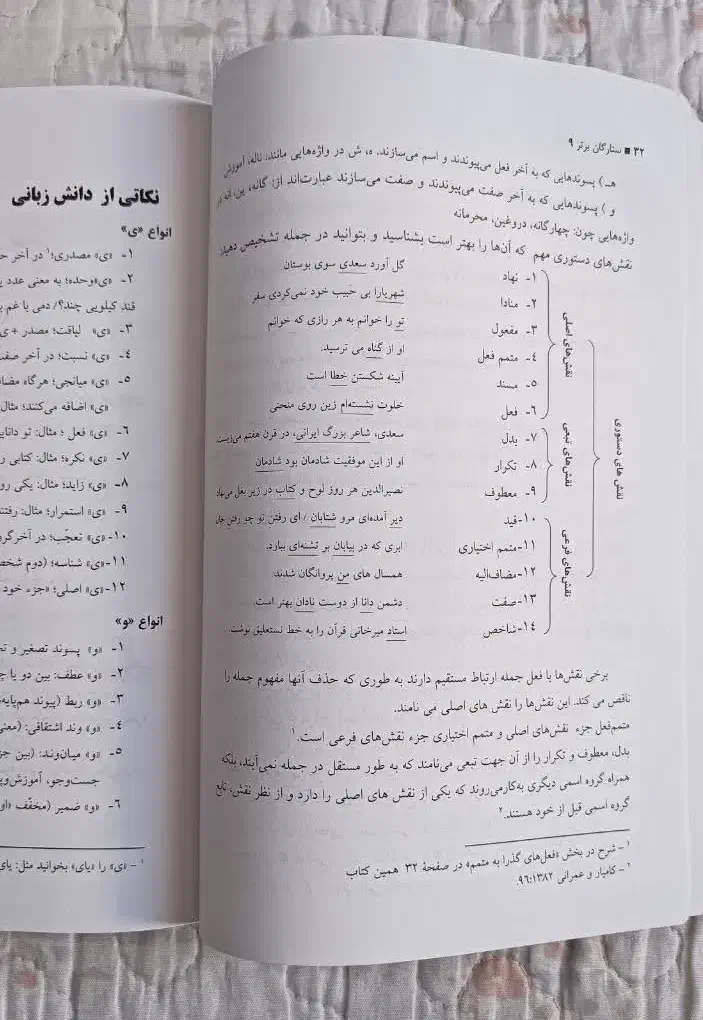 ۳۲ ■ ستارگان برتر ۹
هـ) پسوندهایی که به آخر فعل می‌پیوندند و اسم می‌سازند، ه، ش در واژه‌هایی مانند: ناله، آموزش
و ) پسوندهایی که به آخر صفت می‌پیوندند و صفت می‌سازند عبارت‌اند از: گانه، ین، انه در
واژه‌هایی چون: چهارگانه، دروغین، محرمانه
نقش‌های دستوری مهم که آن‌ها را بهتر است بشناسید و بتوانید در جمله تشخیص دهید:
نقش های دستوری
نقش‌های اصلی
۱- نهاد گل آورد سعدی سوی بوستان
۲- منادا شهریارا بی حَبیب خود نمی‌کردی سفر
۳- مفعول تو را خوانم به هر رازی که خوانم
۴- متمم فعل او از گناه می ترسید.
۵- مسند آیینه شکستن خطا است
۶- فعل خلوت نشسته‌ام زین روی منحنی
نقش‌های تبعی
۷- بدل سعدی، شاعر بزرگ ایرانی، در قرن هفتم می‌زیست
۸- تکرار او از این موفقیت شادمان بود شادمان
۹- معطوف نصیرالدین هر روز لوح و کتاب در زیر بغل می‌نهاد
نقش‌های فرعی
۱۰-قید دیر آمده‌ای مرو شتابان / ای رفتن تو چو رفتن جان
۱۱-متمم اختیاری ابری که در بیابان بر تشنه‌ای ببارد.
۱۲-مضاف‌الیه همسال های من پروانگان شدند
۱۳-صفت دشمن دانا از دوست نادان بهتر است.
۱۴-شاخص استاد میرخانی قرآن را به خط نستعلیق نوشت
برخی نقش‌ها با فعل جمله ارتباط مستقیم دارند به طوری که حذف آنها مفهوم جمله را
ناقص می کند. این نقش‌ها را نقش های اصلی می نامند.
متمم‌فعل جزء نقش‌های اصلی و متمم اختیاری جزء نقش‌های فرعی است.۱
بدل، معطوف و تکرار را از آن جهت تبعی می‌نامند که به طور مستقل در جمله نمی‌آیند، بلکه
همراه گروه اسمی دیگری به‌کارمی‌روند که یکی از نقش های اصلی را دارد و از نظر نقش، تابع
گروه اسمی قبل از خود هستند.۲
۱- شرح در بخش «فعل‌های گذرا به متمم» در صفحهٔ ۳۲ همین کتاب
۲- کامیار و عمرانی ۹۶:۱۳۸۲
نکاتی از دانش زبانی
انواع «ی»
۱- «ی» مصدری؛۱ در آخر
۲- «ی»وحده؛ به معنی عدد
قند کیلویی چند؟/ دمی با غم
۳- «ی» لیاقت؛ مصدر + ی
۴- «ی» نسبت؛ در آخر
۵- «ی» میانجی؛ هرگاه
«ی» اضافه می‌کنند؛ مثال
۶- «ی» فعل ؛ مثال: تو
۷- «ی» نکره؛ مثال: کتابی
۸- «ی» زاید؛ مثال: یکی
۹- «ی» استمرار؛ مثال:
۱۰-«ی» تعجّب؛ در
۱۱-«ی» شناسه؛ (دوم
۱۲-«ی» اصلی؛ «جزء خود
انواع «و»
۱- «و» پسوند تصغیر و
۲- «و» عطف: بین دو یا
۳- «و» ربط (پیوند
۴- «و» وند اشتقاقی:
۵- «و» میان‌وند: (بین
جست‌وجو،
۶- «و» ضمیر (مخفّف
۱- «ی» را «یای» بخوانید مثل: یای